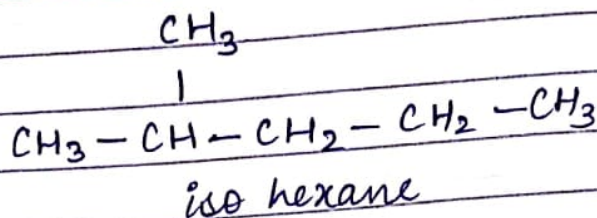 CH₃
|
CH₃ – CH – CH₂ – CH₂ – CH₃
iso hexane